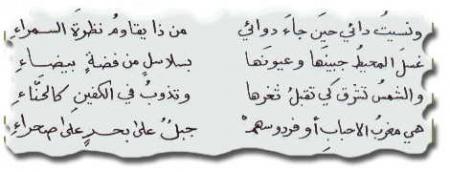 ونسيتُ دائي حينَ جاءَ دوائي من ذا يقاومُ نظرةَ السمراءِ
غسلَ المحيطُ جبينَها وعيونَها بسلاسلٍ من فضةٍ بيضاءِ
والشمسُ تشرق كي تقبلَ ثغرَها وتذوبُ في الكفينِ كالحنَّاءِ
هي مغربُ الاحبابِ أو فردوسهمْ جبلٌ على بحرٍ على صحراءِ